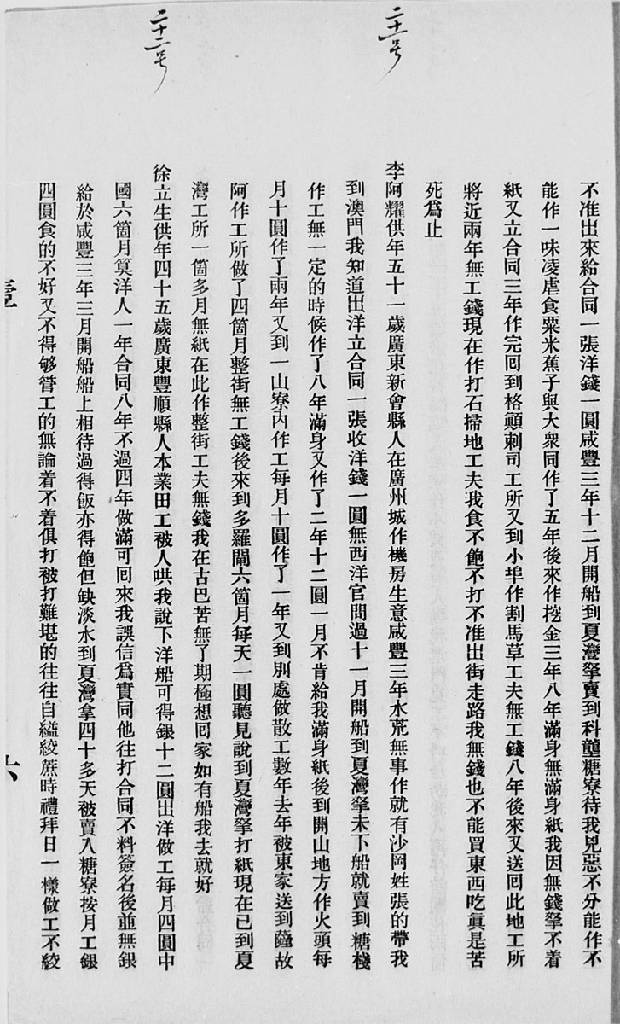 不准出來給合同一張洋錢一圓咸豐三年十二月開船到夏灣拏賣到科壟糖寮待我兇惡不分能作不
能作一味凌虐食粟米蕉子與大衆同作了五年後來作挖金三年八年滿身無滿身紙我因無錢拏不着
紙又立合同三年作完回到格顛剌司工所又到小埠作割馬草工夫無工錢八年後來又送回此地工所
將近兩年無工錢現在作打石掃地工夫我食不飽不打不准出街走路我無錢也不能買東西吃眞是苦
死爲止
二十一号
李阿耀供年五十一歲廣東新會縣人在廣州城作機房生意咸豐三年水荒無事作就有沙岡姓張的帶我
到澳門我知道出洋立合同一張收洋錢一圓無西洋官問過十一月開船到夏灣拏未下船就賣到糖棧
作工無一定的時候作了八年滿身又作了二年十二圓一月不肯給我滿身紙後到開山地方作火頭每
月十圓作了兩年又到一山寮內作工每月十圓作了一年又到別處做散工數年去年被東家送到薩故
阿作工所做了四箇月整街無工錢後來到多羅閘六箇月每天一圓聽見說到夏灣拏打紙現在已到夏
灣工所一箇多月無紙在此作整街工夫無錢我在古巴苦無了期極想回家如有船我去就好
二十二号
徐立生供年四十五歲廣東豐順縣人本業田工被人哄我說下洋船可得銀十二圓出洋做工每月四圓中
國六箇月算洋人一年合同八年不過四年做滿可回來我誤信爲實同他往打合同不料簽名後並無銀
給於咸豐三年三月開船船上相待過得飯亦得飽但缺淡水到夏灣拿四十多天被賣入糖寮按月工銀
四圓食的不好又不得够管工的無論着不着俱打被打難堪的往往自縊絞蔗時禮拜日一樣做工不絞
六